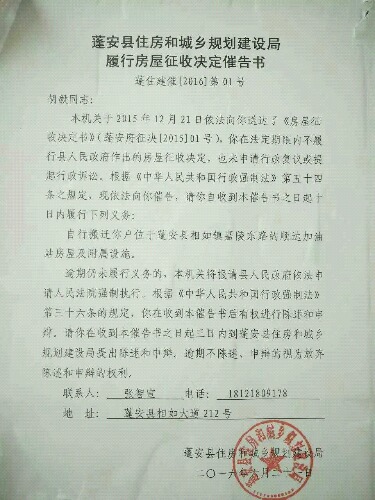 蓬安县住房和城乡规划建设局
履行房屋征收决定催告书
蓬住建催[2016]第01号
胡毅同志：
本机关于2015年12月21日依法向你送达了《房屋征
收决定书》（蓬安府征决[2015]01号），你在法定期限内不履
行县人民政府作出的房屋征收决定，也未申请行政复议或提
起行政诉讼。根据《中华人民共和国行政强制法》第五十四
条之规定，现依法向你催告，请你自收到本催告书之日起十
日内履行下列义务：
自行搬迁你户位于蓬安县相如镇嘉陵东路的顺运加油
站房屋及附属设施。
逾期仍未履行义务的，本机关将报请县人民政府依法申
请人民法院强制执行。根据《中华人民共和国行政强制法》
第三十六条的规定，你在收到本催告书后有权进行陈述和申
辩。请你在收到本催告书之日起三日内到蓬安县住房和城乡
规划建设局提出陈述和申辩，逾期不陈述、申辩的视为放弃
陈述和申辩的权利。
联系人：张智宣 电话：18121809178
地 址：蓬安县相如大道212号
蓬安县住房和城乡规划建设局
二〇一六年六月二十一日